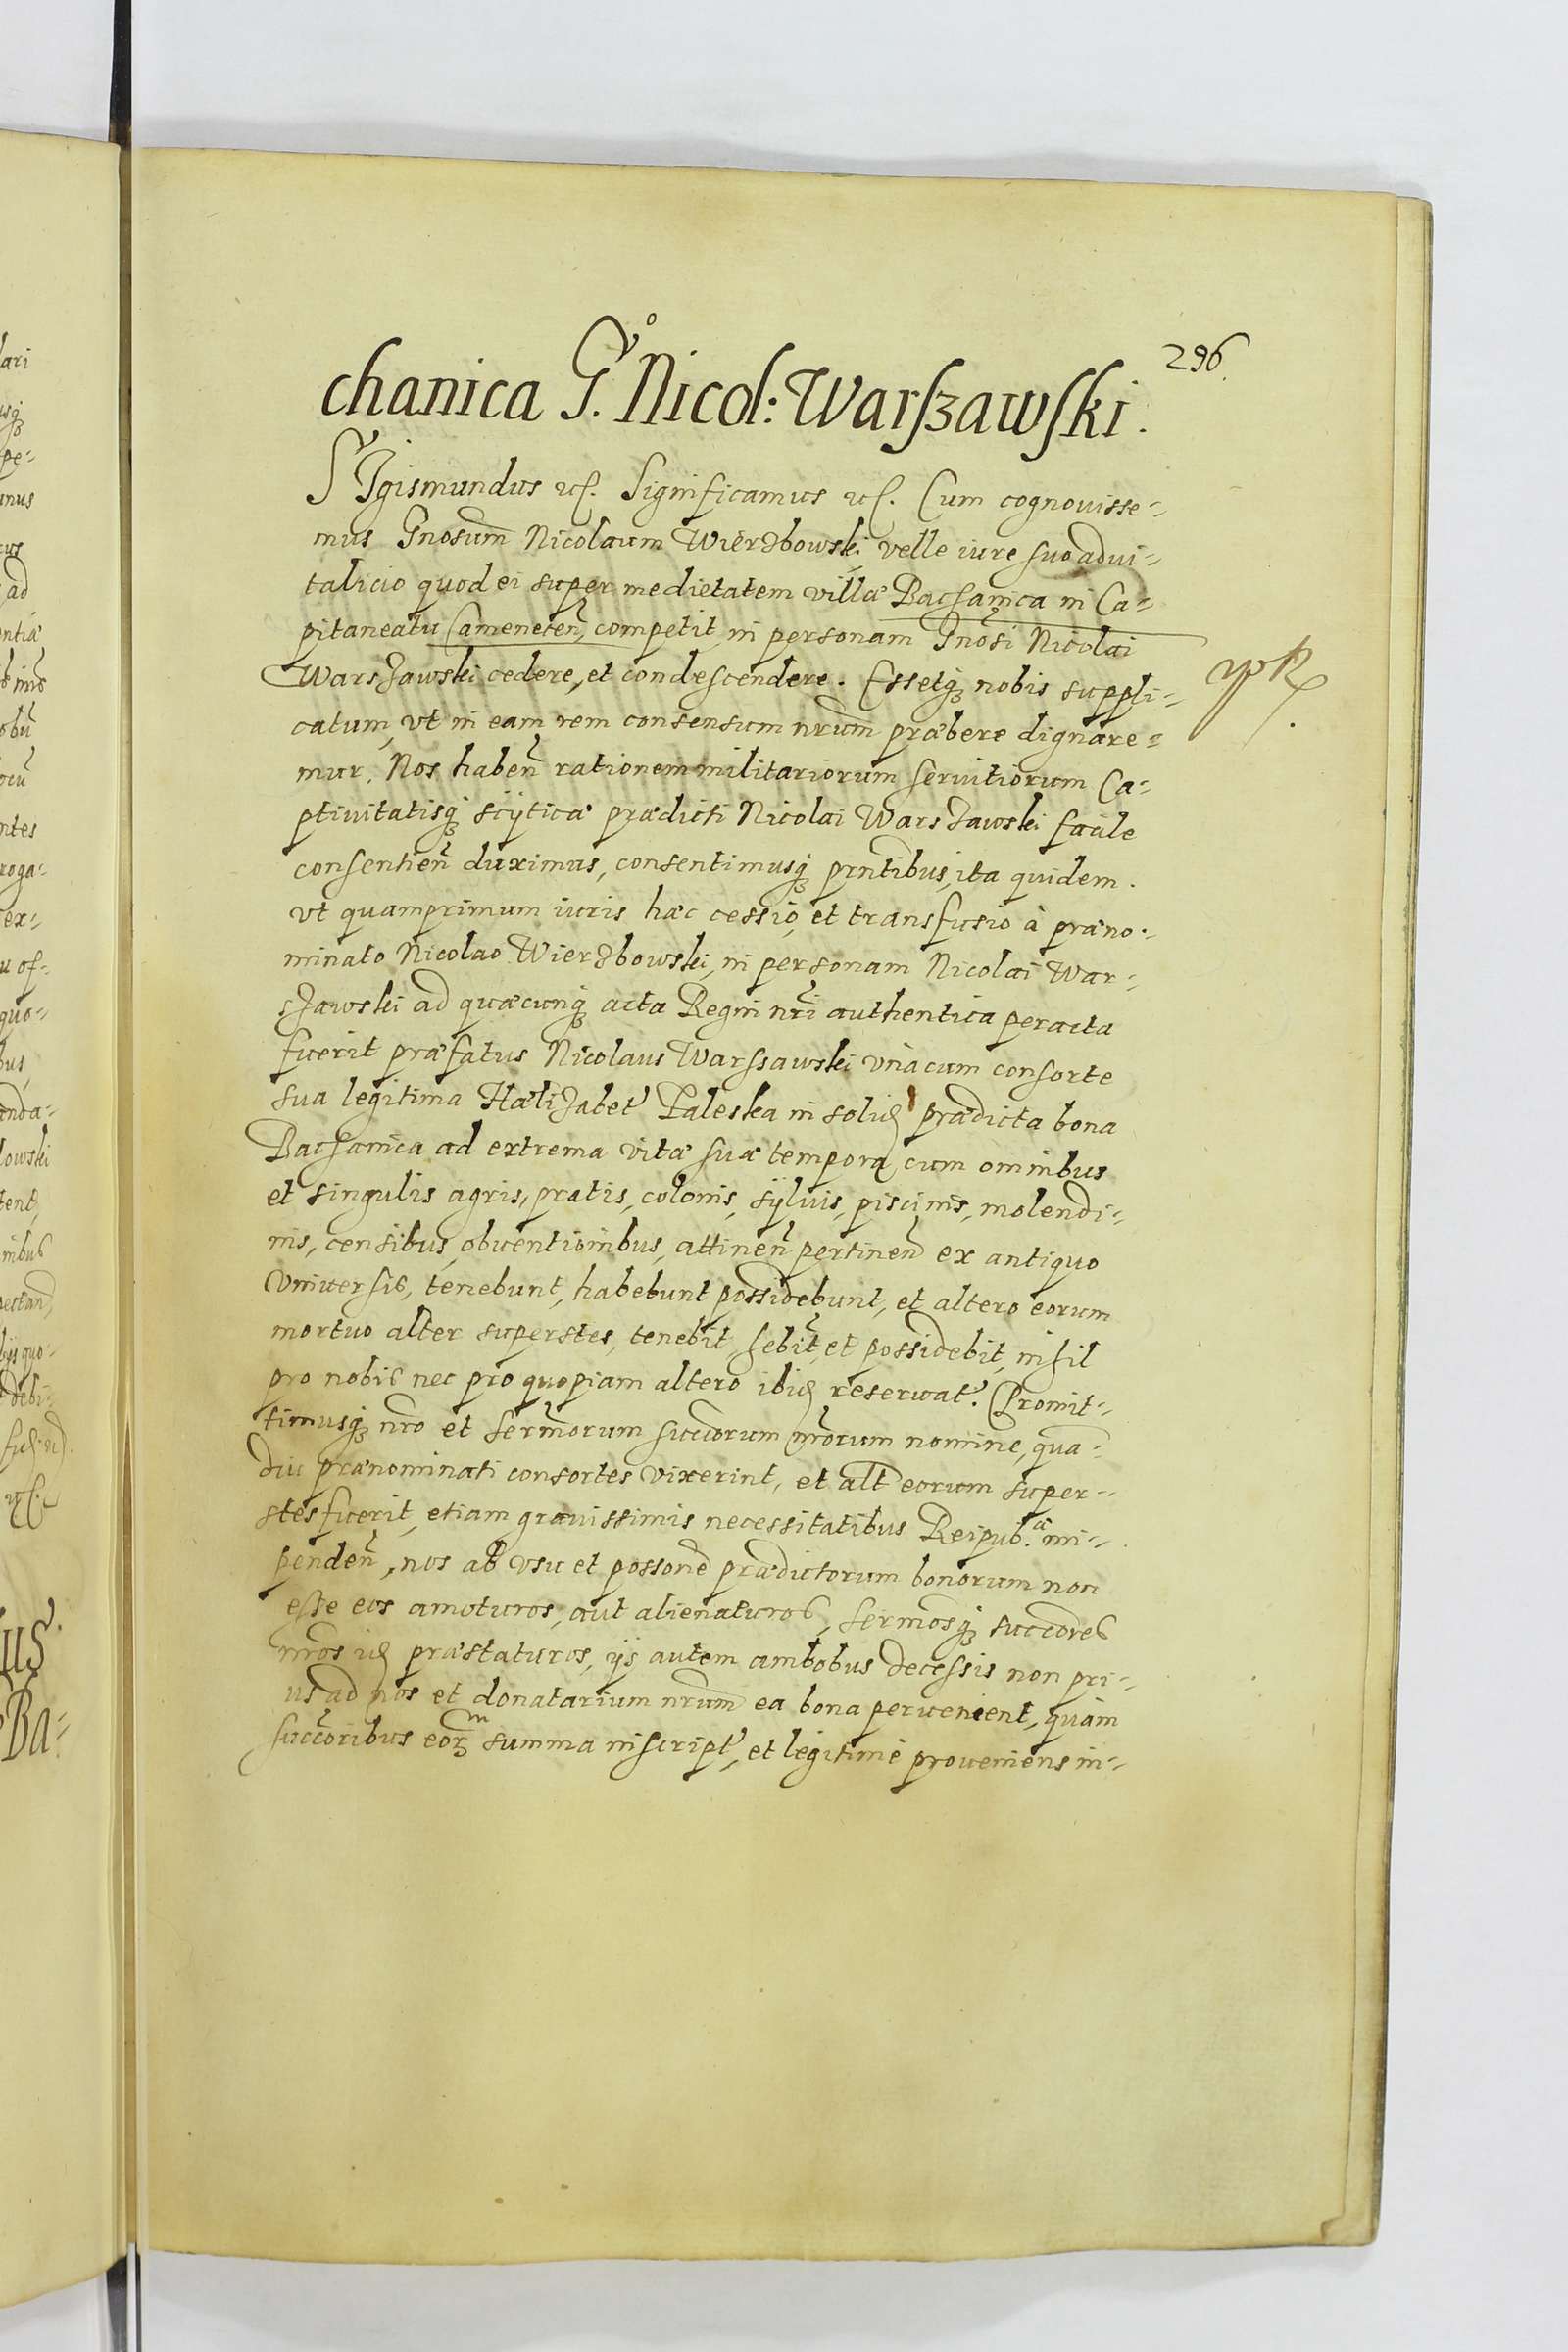 296
chanica G.° Nicol: Warszawski.
SIgismundus etc. Significamus etc. Cum cognouisse-
mus Gnosum Nicolaum Wierzbowski velle iure suo advi-
talicio quod ei super medietatem villæ Bachanica in Ca-
pitaneatu Camenecen, competit in personam Gnosi Nicolai
Warszawski cedere, et condescendere. Essetq nobis suppli-
catum, vt in eam rem consensum nrum præbere dignare-
mur. Nos haben rationem militariorum seruitiorum Ca-
ptiuitatisq sciticæ prædicti Nicolai Warszawski facile
consentien duximus, consentimusq prntibus, ita quidem.
vt quamprimum iuris hæc cessio, et transfusio à præno-
minato Nicolao Wierzbowski, in personam Nicolai War-
szawski ad quæcunq acta Regni nri authentica peracta
fuerit præfatus Nicolaus Warssawski vnà cum consorte
sua legitima Hælizabet Zaleska in solid prædicta bona
Bachanica ad extrema vitæ suæ tempora, cum omnibus
et singulis agris, pratis, colonis, sÿluis, piscinis, molendi-
nis, censibus, obuentionibus, attinen pertinen ex antiquo
Vniuersis, tenebunt, habebunt possidebunt, et altero eorum
mortuo alter superstes, tenebit, hebit, et possidebit, nihil
pro nobis nec pro quopiam altero ibid reseruat. Promit-
timusq nro et Sermorum succorum nrorum nomine, qua-
diu prænominati consortes vixerint, et alt eorum super-
stes fuerit, etiam grauissimis necessitatibus Reipub.æ im-
penden, nos ab vsu et possone prædictorum bonorum non
esse eos amoturos, aut alienaturos, Sermosq succores
nros id præstaturos, ijs autem ambobus decessis non pri-
us ad nos et donatarium nrum ea bona peruenient, quàm
succoribus eorum summa inscript, et legitimè proueniens in-